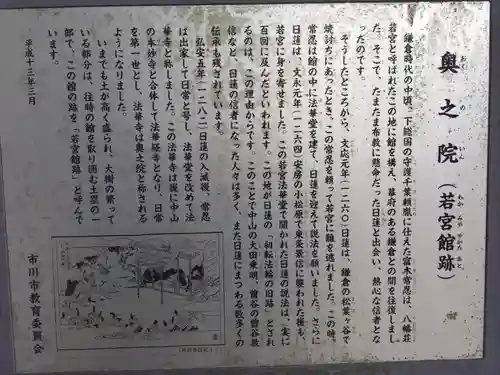 奥之院（若宮館跡）
おく の いん わか みや やかた あと
鎌倉時代の中頃、下総国の守護千葉頼胤に仕えた富木常忍は、八幡荘
若宮と呼ばれたこの地に館を構え、幕府のある鎌倉との間を往復しまし
た。そこで、たまたま布教に懸命だった日蓮と出会い、熱心な信者とな
ったのです。
そうしたところから、文応元年（一二六〇）日蓮は、鎌倉の松葉ヶ谷で
焼討ちにあったとき、この常忍を頼って若宮に難を逃れました。この時、
常忍は館の中に法華堂を建て、日蓮を迎えて説法を願いました。さらに
日蓮は、文永元年（一二六四）安房の小松原で東条景信に襲われた後も、
若宮に身を寄せました。この若宮法華堂で開かれた日蓮の説法は、実に
百回に及んだといわれます。この地が日蓮の「初転法輪の旧跡」とされ
るのは、この理由からです。このことで中山の大田乗明、曽谷の曽谷教
信など、日蓮の信者になった人々は多く、また日蓮にまつわる数多くの
伝承も残されています。
弘安五年（一二八二）日蓮の入滅後、常忍
は出家して日常と号し、若宮法華堂を改めて法
華寺と称しました。この法華寺は後に中山
の本妙寺と合体して法華経寺となり、日常
を第一世とし、法華寺は奥之院と称される
ようになりました。
いまでも土が高く盛られ、大樹の繁って
いる部分は、往時の館を取り囲む土塁の一
部で、この館の跡を「若宮館跡」と呼んで
います。
平成十三年三月
市川市教育委員会